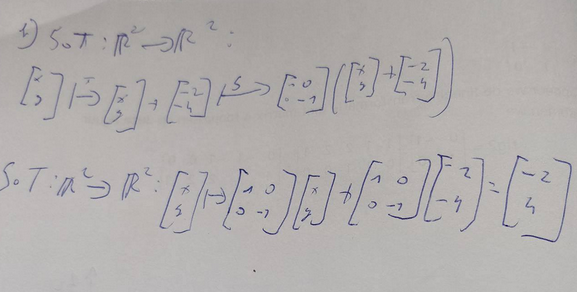 1) S∘T: ℝ² → ℝ²:
[x y] ↦ᵀ [x y] + [-2 -4] ↦ˢ [ 0 -1]([x y] + [-2 -4])
S∘T: ℝ² → ℝ²: [x y] ↦ [1 0 0 -1][x y] + [1 0 0 -1][-2 -4] = [-2 4]